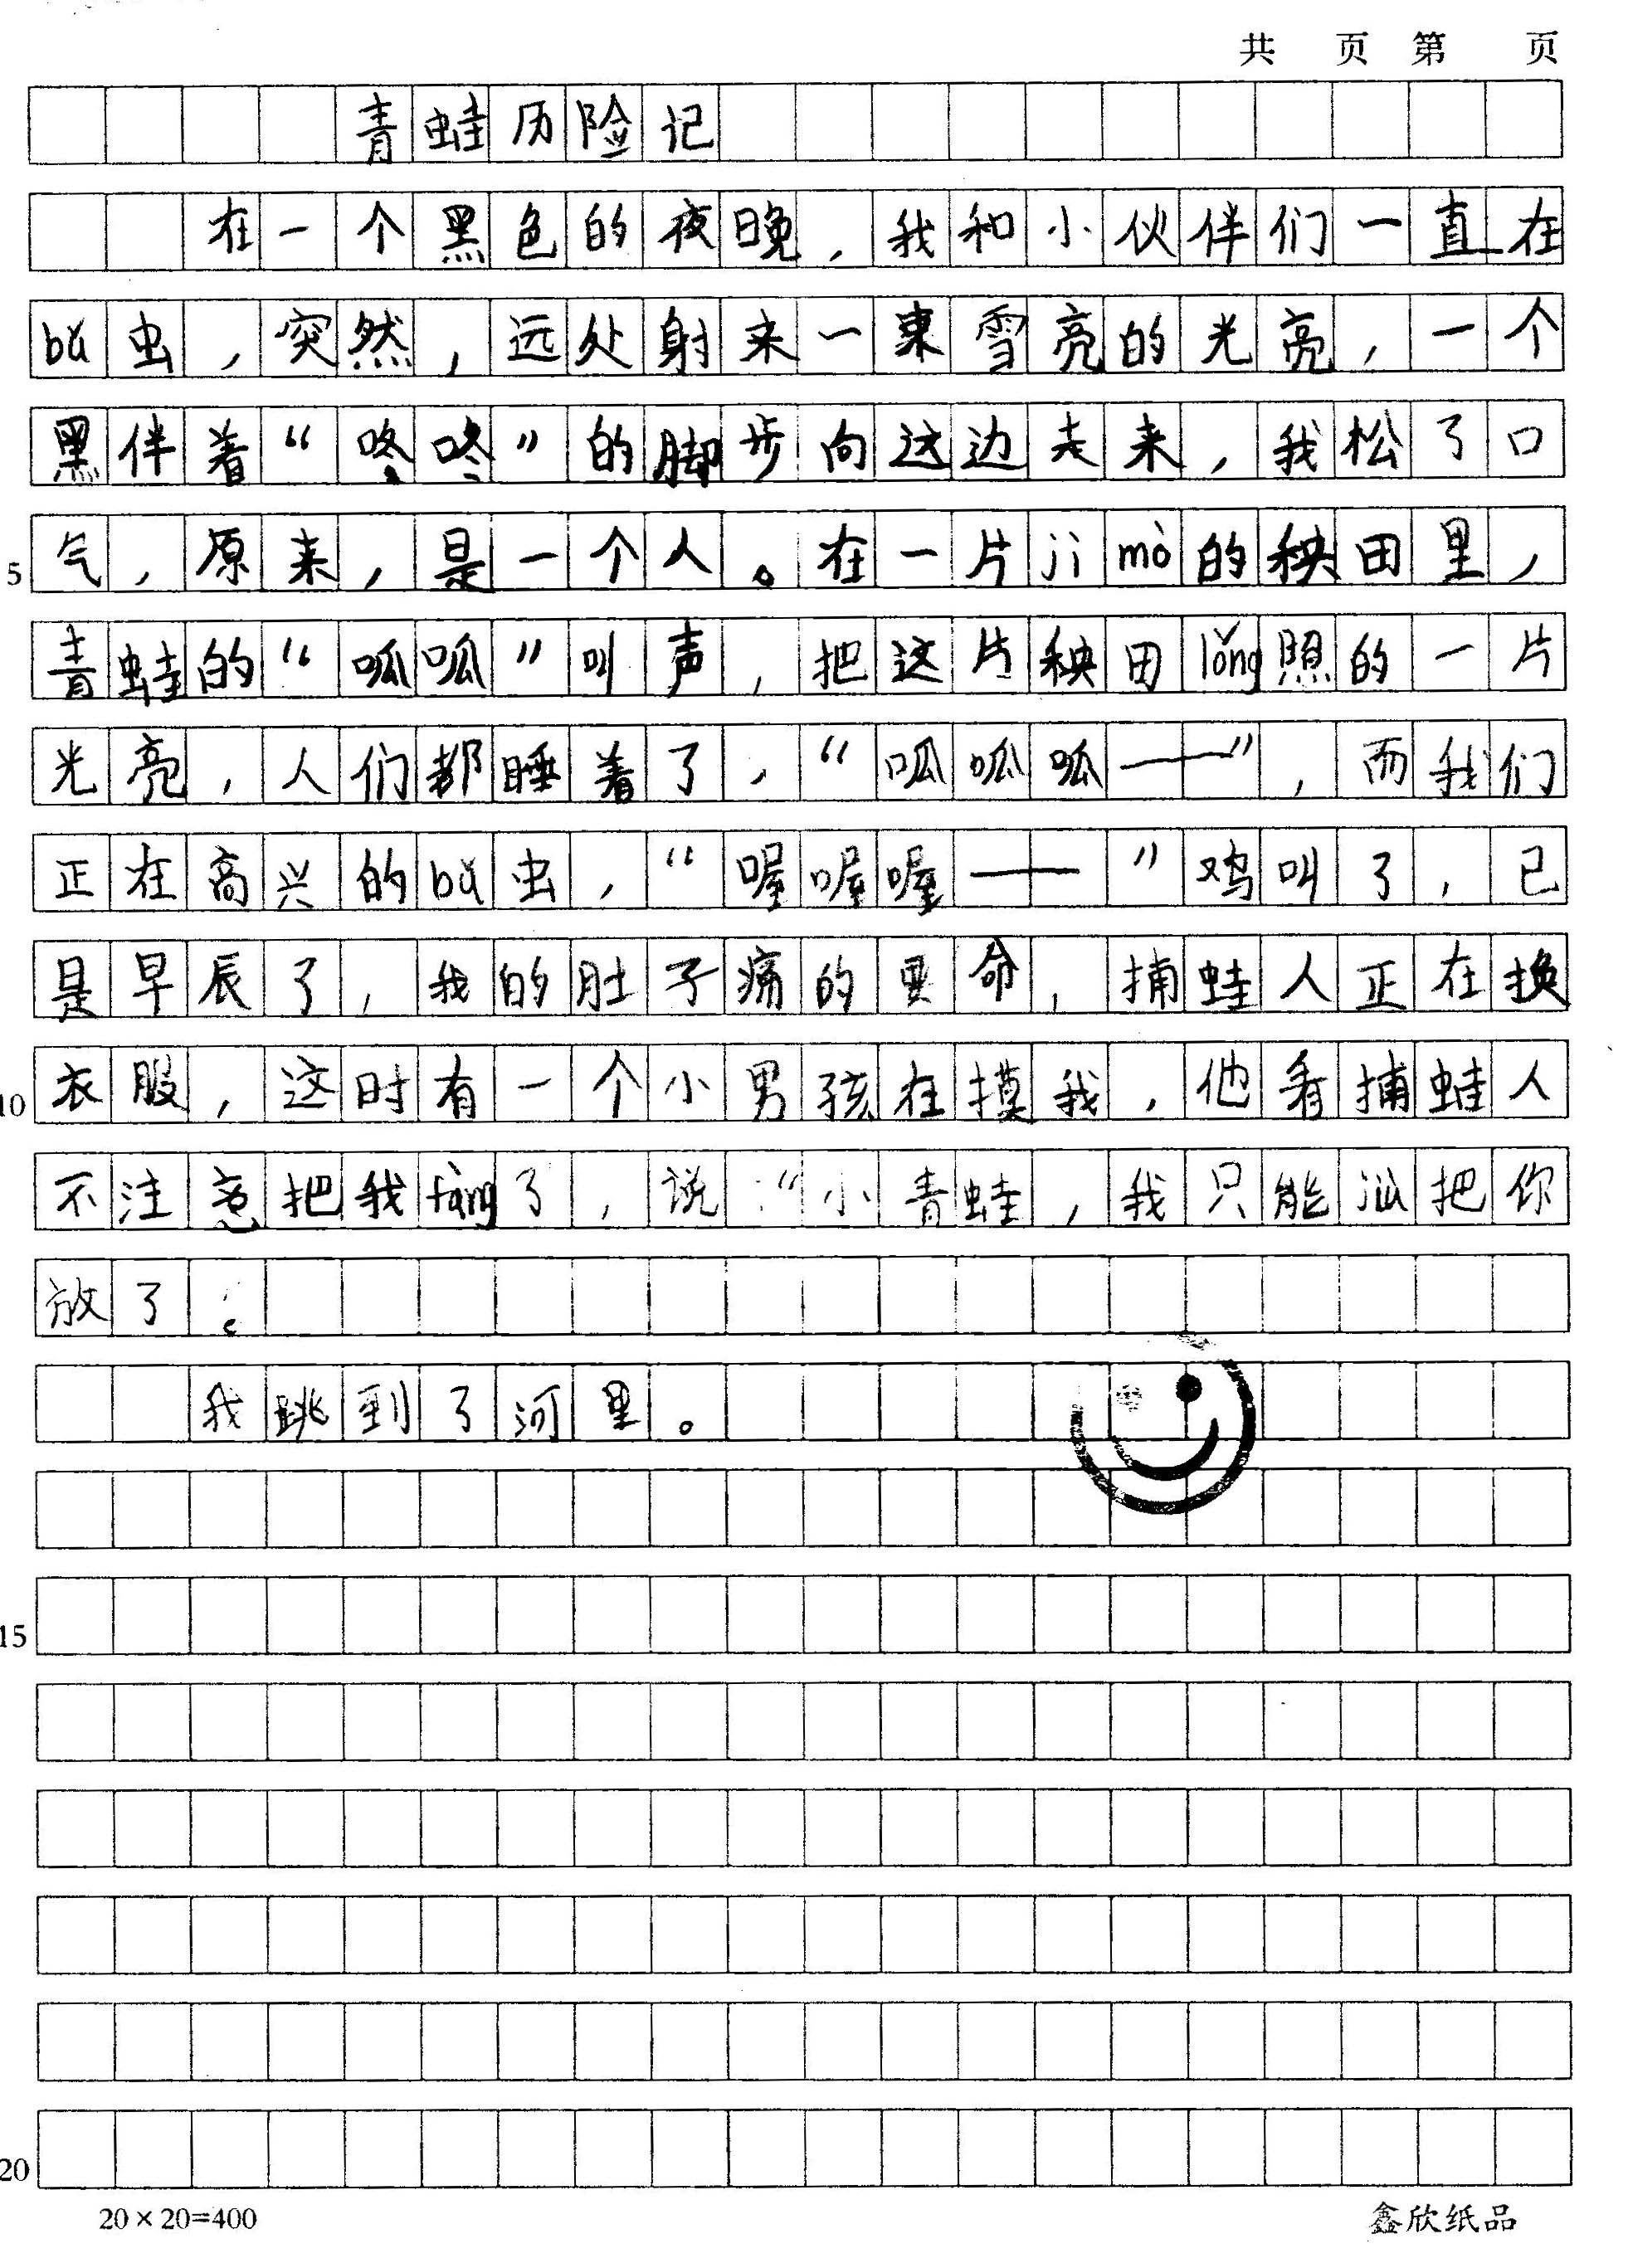 共 页 第 页
青蛙历险记
在一个黑色的夜晚，我和小伙伴们一直在
bǔ虫，突然，远处射来一束雪亮的光亮，一个
黑伴着“咚咚”的脚步向这边走来，我松了口
气，原来，是一个人。在一片jì mò的秧田里，
5
青蛙的“呱呱”叫声，把这片秧田lǒng照的一片
光亮，人们都睡着了，“呱呱呱——”，而我们
正在高兴的bǔ虫，“喔喔喔——”鸡叫了，已
是早辰了，我的肚子痛的要命，捕蛙人正在换
衣服，这时有一个小男孩在摸我，他看捕蛙人
10
不注意把我fàng了，说：“小青蛙，我只能把你
放了。
我跳到了河里。
15
20
20×20=400
鑫欣纸品